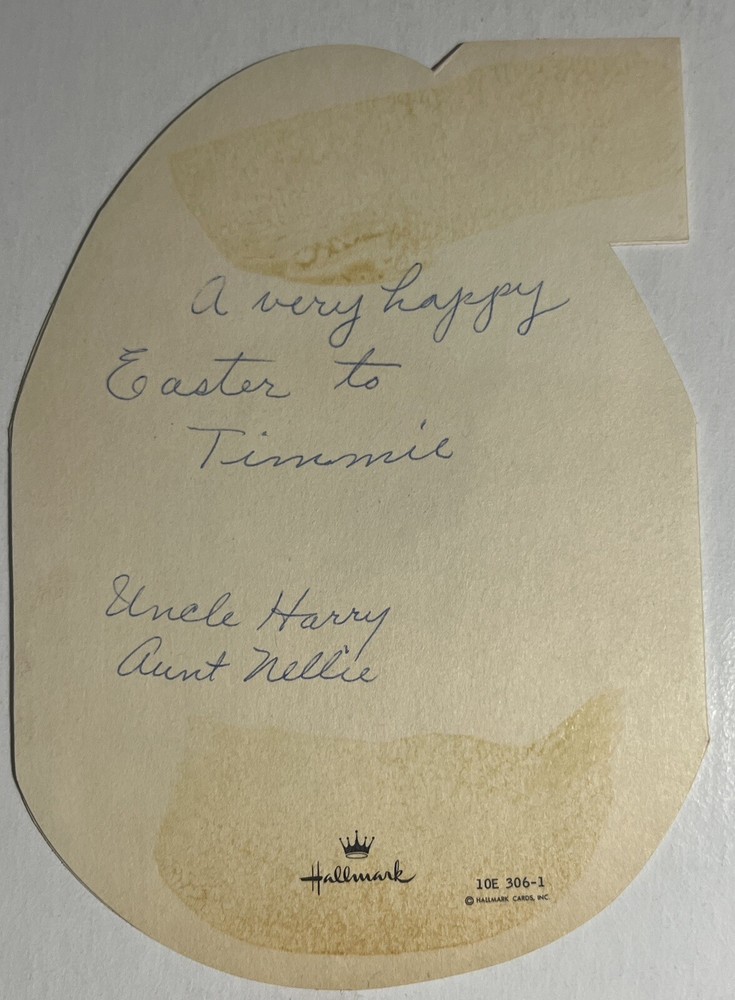 A very happy
Easter to
Timmie
Uncle Harry
Aunt Nellie
Hallmark
10E 306-1
© HALLMARK CARDS, INC.